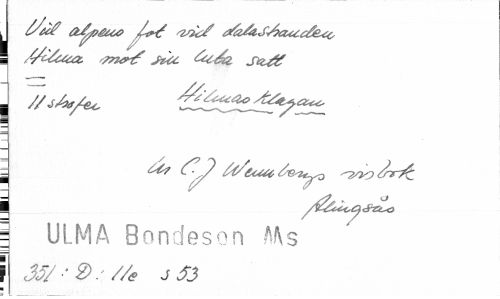 Vid alpens fot vid dalastranden
Hilma mot sin luta satt
11 strofer Hilmas klagan
Ur C. J Wennbergs visbok
Alingsås
ULMA Bondeson Ms
351 : D : 11e s 53